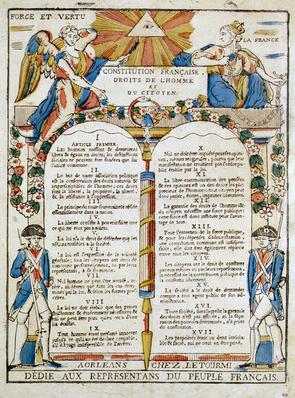 FORCE ET VERTU
LA FRANCE
CONSTITUTION FRANÇAISE,
DROITS DE L'HOMME
ET
DU CITOYEN.
I
ARTICLE PREMIER.
Les hommes naissent & demeurent
libres & égaux en droits; les distinctions
sociales ne peuvent être fondées que sur
l'utilité commune.
II
Le but de toute association politique
est la conservation des droits naturels &
imprescriptibles de l'homme; ces droits
sont la liberté, la propriété, la sûreté,
& la résistance à l'oppression.
III
Le principe de toute souveraineté réside
essentiellement dans la nation.
IV
La liberté consiste à pouvoir faire tout
ce qui ne nuit pas à autrui.
V
La loi n'a le droit de défendre que les
actions nuisibles à la société.
VI
La loi est l'expression de la volonté
générale; tous les citoyens ont droit de
concourir personnellement, ou par leurs
représentants, à sa formation.
VII
Nul homme ne peut être accusé,
arrêté, ni détenu que dans les cas
déterminés par la loi, & selon les formes
prescrites.
VIII
La loi ne doit établir que des peines
strictement & évidemment nécessaires &
nul ne peut être puni qu'en vertu d'une
loi établie.
IX
Tout homme étant présumé innocent
jusqu'à ce qu'il ait été déclaré coupable,
X
Nul ne doit être inquiété pour ses opinions,
mêmes religieuses, pourvu que leur
manifestation ne trouble pas l'ordre public
établi par la loi.
XI
La libre communication des pensées
& des opinions est un des droits les plus
précieux de l'homme; tout citoyen peut
donc parler, écrire, imprimer librement.
XII
La garantie des droits de l'homme &
du citoyen nécessite une force publique;
cette force est donc instituée pour l'avantage
de tous.
XIII
Pour l'entretien de la force publique,
& pour les dépenses d'administration,
une contribution commune est indispensable;
elle doit être également répartie
entre tous les citoyens.
XIV
Les citoyens ont le droit de constater
par eux-mêmes ou par leurs représentants,
la nécessité de la contribution publique, de
la consentir librement.
XV
La société a le droit de demander
compte à tout agent public de son administration.
XVI
Toute société, dans laquelle la garantie
des droits n'est pas assurée, ni la séparation
des pouvoirs déterminée, n'a point
de constitution.
XVII
Les propriétés étant un droit inviolable
& sacré, nul ne peut en être privé.
A ORLEANS CHEZ LETOURMI
DÉDIÉ AUX REPRESENTANS DU PEUPLE FRANÇAIS.